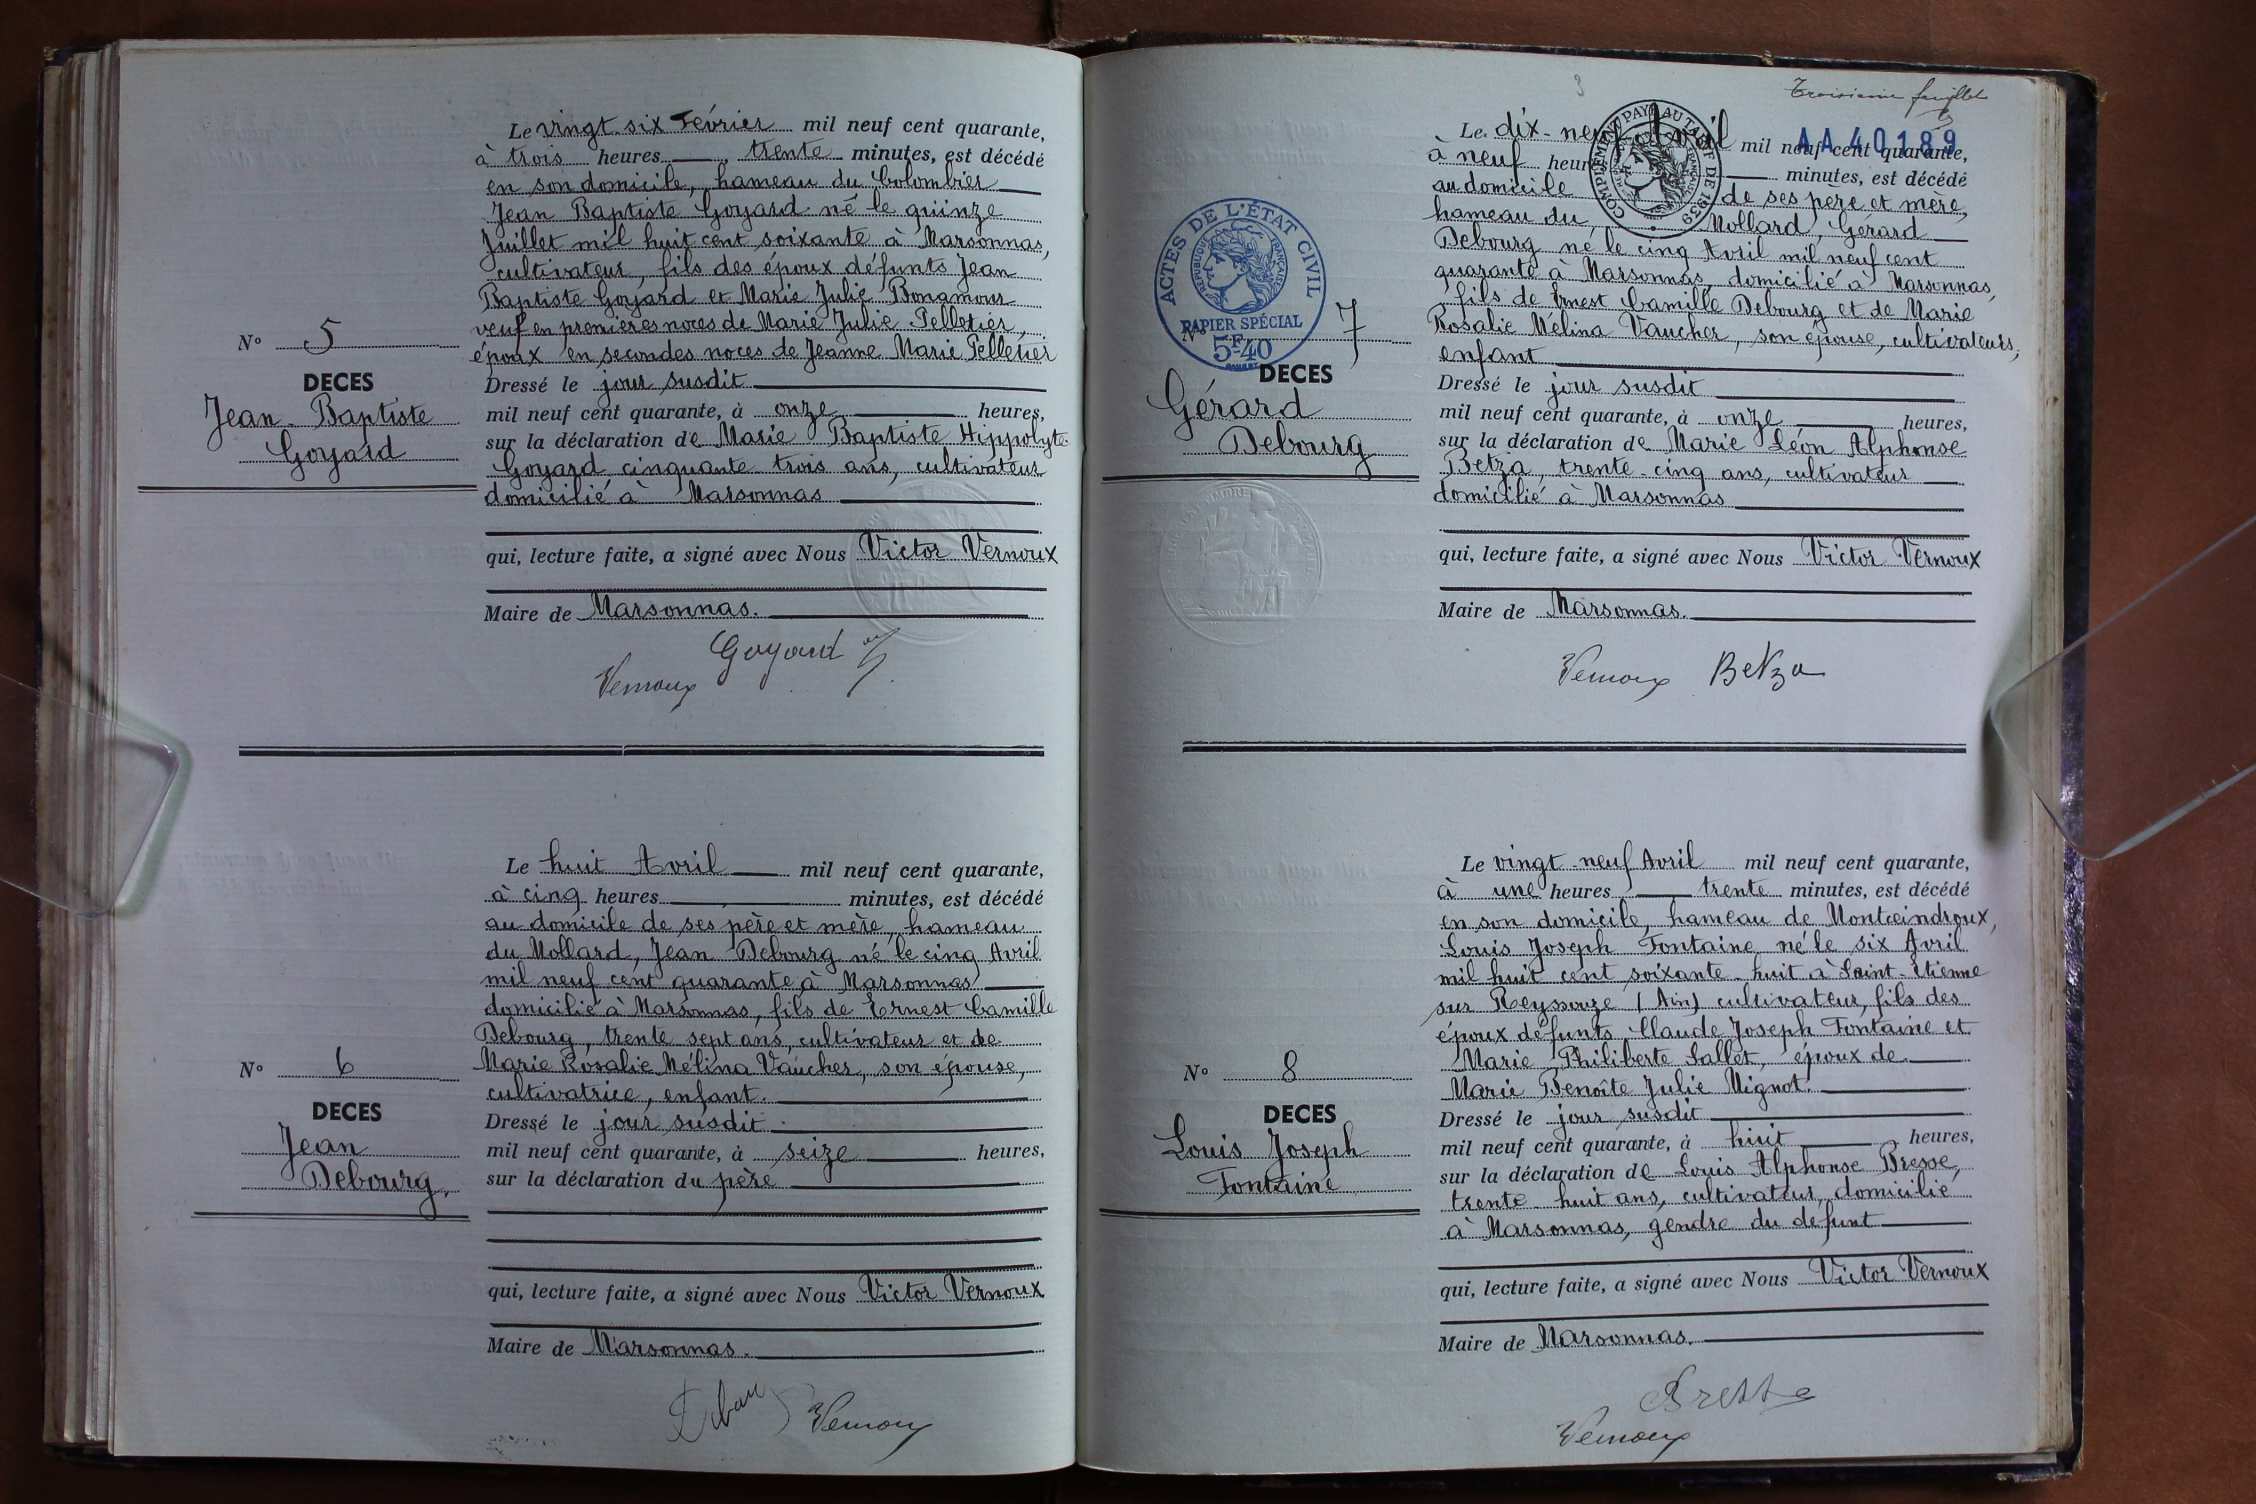 Le vingt-six Février mil neuf cent quarante,
à trois heures trente minutes, est décédé
en son domicile, hameau du Colombier
Jean Baptiste Goyard né le quinze
Juillet mil huit cent soixante à Marsonnas,
cultivateur, fils des époux défunts Jean
Baptiste Goyard et Marie Julie Bonamour
veuf en premières noces de Marie Julie Pelletier,
époux en secondes noces de Jeanne Marie Pelletier
N° 5
DECES
Jean-Baptiste
Goyard
Dressé le jour susdit
mil neuf cent quarante, à onze heures,
sur la déclaration de Marie Baptiste Hippolyte
Goyard cinquante trois ans, cultivateur
domicilié à Marsonnas
qui, lecture faite, a signé avec Nous Victor Vernoux
Maire de Marsonnas.
Goyard
Vernoux
Le huit Avril mil neuf cent quarante,
à cinq heures minutes, est décédé
au domicile de ses père et mère, hameau
du Mollard, Jean Debourg né le cinq Avril
mil neuf cent quarante à Marsonnas
domicilié à Marsonnas, fils de Ernest Camille
Debourg, trente sept ans, cultivateur et de
Marie Rosalie Mélina Vaucher, son épouse,
cultivatrice, enfant.
N° 6
DECES
Jean
Debourg,
Dressé le jour susdit
mil neuf cent quarante, à seize heures,
sur la déclaration du père
qui, lecture faite, a signé avec Nous Victor Vernoux
Maire de Marsonnas.
Vernoux
3
Troisième feuillet
AA 40189
COMPLEMENT PAYÉ AU TARIF DE 1939
Le dix-neuf Avril mil neuf cent quarante,
à neuf heures minutes, est décédé
au domicile de ses père et mère,
hameau du Mollard, Gérard
Debourg né le cinq Avril mil neuf cent
quarante à Marsonnas, domicilié à Marsonnas,
fils de Ernest Camille Debourg et de Marie
Rosalie Mélina Vaucher, son épouse, cultivateurs,
enfant
ACTES DE L'ÉTAT CIVIL
RÉPUBLIQUE FRANÇAISE
PAPIER SPÉCIAL
5F-40
N° 7
DECES
Gérard
Debourg
Dressé le jour susdit
mil neuf cent quarante, à onze heures,
sur la déclaration de Marie Léon Alphonse
Betza, trente-cinq ans, cultivateur
domicilié à Marsonnas
qui, lecture faite, a signé avec Nous Victor Vernoux
Maire de Marsonnas.
Vernoux Betza
Le vingt-neuf Avril mil neuf cent quarante,
à une heures trente minutes, est décédé
en son domicile, hameau de Montceindroux,
Louis Joseph Fontaine né le six Avril
mil huit cent soixante-huit à Saint-Etienne
sur Reyssouze (Ain) cultivateur, fils des
époux défunts Claude Joseph Fontaine et
Marie Philiberte Sallet, époux de
Marie Benoîte Julie Mignot.
N° 8
DECES
Louis Joseph
Fontaine
Dressé le jour susdit
mil neuf cent quarante, à huit heures,
sur la déclaration de Louis Alphonse Bresse,
trente-huit ans, cultivateur, domicilié
à Marsonnas, gendre du défunt
qui, lecture faite, a signé avec Nous Victor Vernoux
Maire de Marsonnas.
Bresse
Vernoux